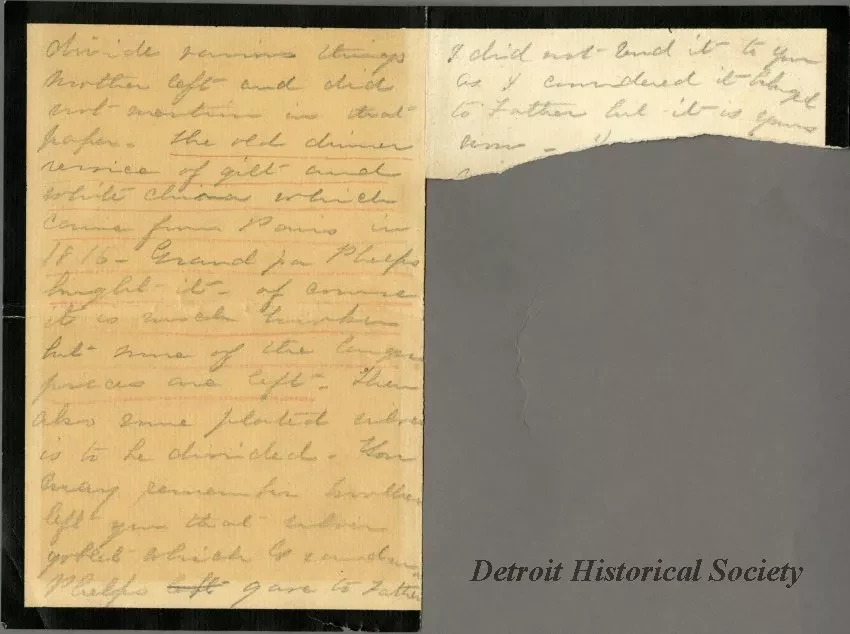 divide various things
Mother left and did
not mention in that
paper. The old dinner
service of gilt and
white china which
came from Paris in
1816 - Grand pa Phelps
bught it - of course
it is much broken
but some of the larger
pieces are left. Then
also some plated silver
is to be divided. You
may remember Mother
left you that silver
goblet which
Phelps left gave to Father
I did not send it to you
as I considered it belongd
to Father but it is yours
now -
Detroit Historical Society